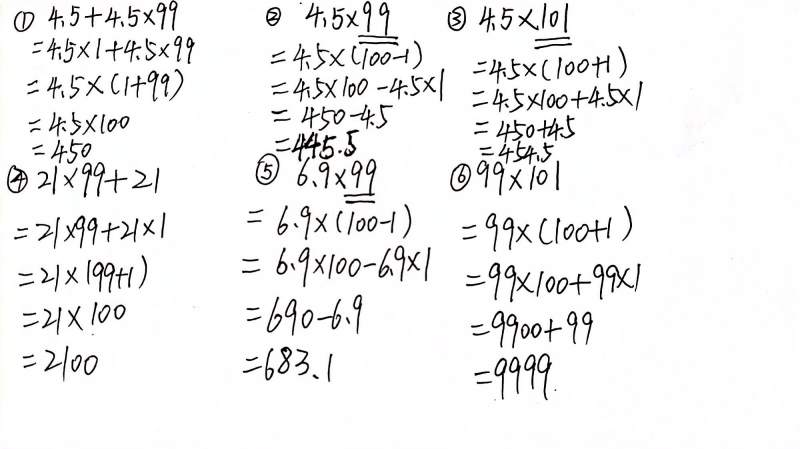 ① 4.5+4.5×99
=4.5×1+4.5×99
=4.5×(1+99)
=4.5×100
=450
② 4.5×99
=4.5×(100-1)
=4.5×100-4.5×1
=450-4.5
=445.5
③ 4.5×101
=4.5×(100+1)
=4.5×100+4.5×1
=450+4.5
=454.5
④ 21×99+21
=21×99+21×1
=21×(99+1)
=21×100
=2100
⑤ 6.9×99
=6.9×(100-1)
=6.9×100-6.9×1
=690-6.9
=683.1
⑥ 99×101
=99×(100+1)
=99×100+99×1
=9900+99
=9999.